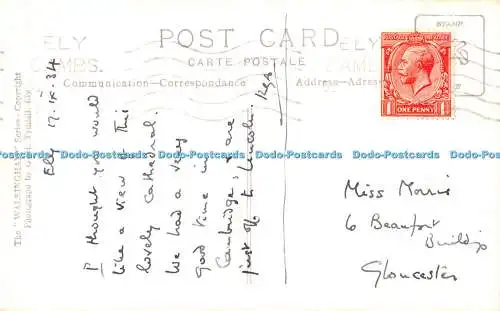 POST CARD
CARTE POSTALE
Communication—Correspondance
Address—Adresse
STAMP
ELY
CAMBS.
ELY
POSTAGE
ONE PENNY
The "WALSINGHAM" Series - Copyright
Photograph by
Ely 17.IX.34
I thought you would
like a view of this
lovely Cathedral.
We had a very
good time in
Cambridge, & are
just off to Lincoln.
Miss Morris
6 Beaufort
Buildgs
Gloucester
Dodo-Postcards Dodo-Postcards Dodo-Postcards Dodo-Postcards Dodo-Postcards